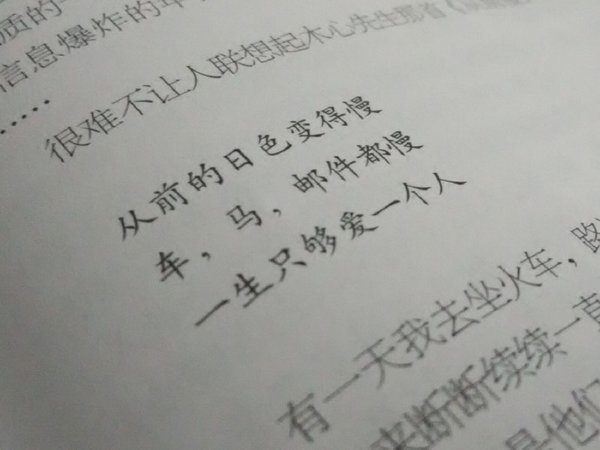 质的
信息爆炸的年
……
很难不让人联想起木心先生那首《
从前的日色变得慢
车，马，邮件都慢
一生只够爱一个人
有一天我去坐火车，路
来断断续续一直
是他们